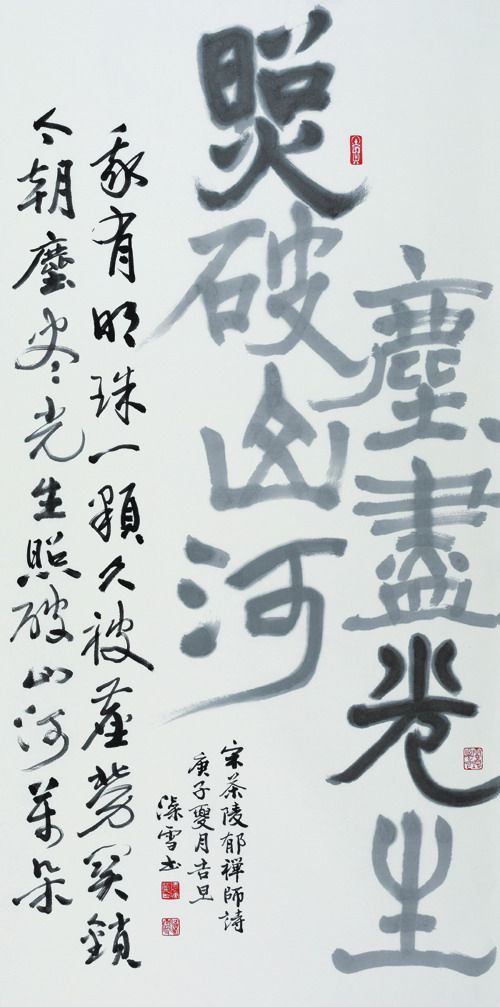 塵盡光生
照破山河
我有明珠一顆久被塵勞關鎖
今朝塵盡光生照破山河萬朵
宋茶陵郁禪師詩
庚子夏月吉旦
深雪书